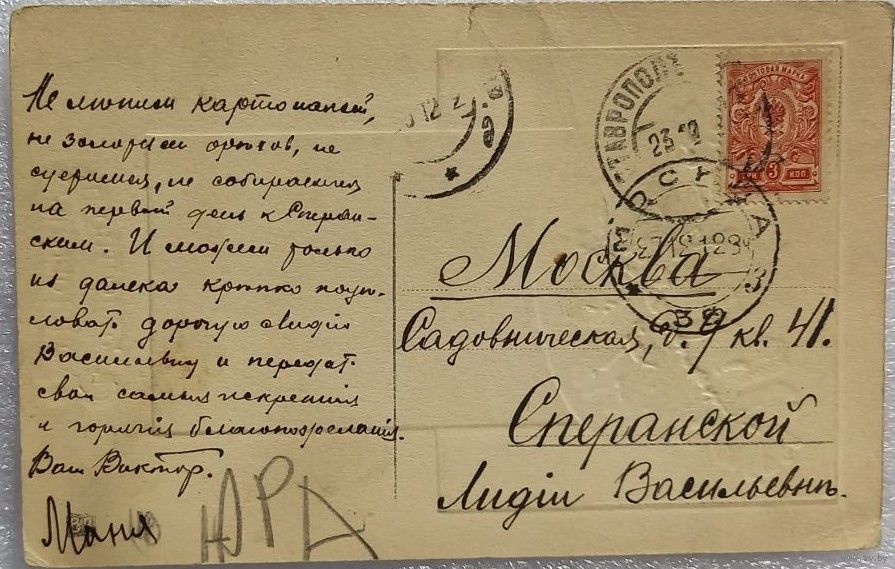 Не лютим картонажей,
не золотим орехов, не
суетимся, не собираемся
на первый день к Сперан-
ским. И можем только
из далека крепко поцѣ-
ловать дорогую Лидію
Васильевну и передать
свои самыя искреннія
и горячія благопожеланія.
Ваш Виктор.
Маня
ЮРА
12
СТАВРОПОЛЬ
23
ПОЧТОВАЯ МАРКА
3 КОП
МОСКВА
12
Москва
Садовническая, д. 7 кв. 41.
Сперанской
Лидіи Васильевнѣ.